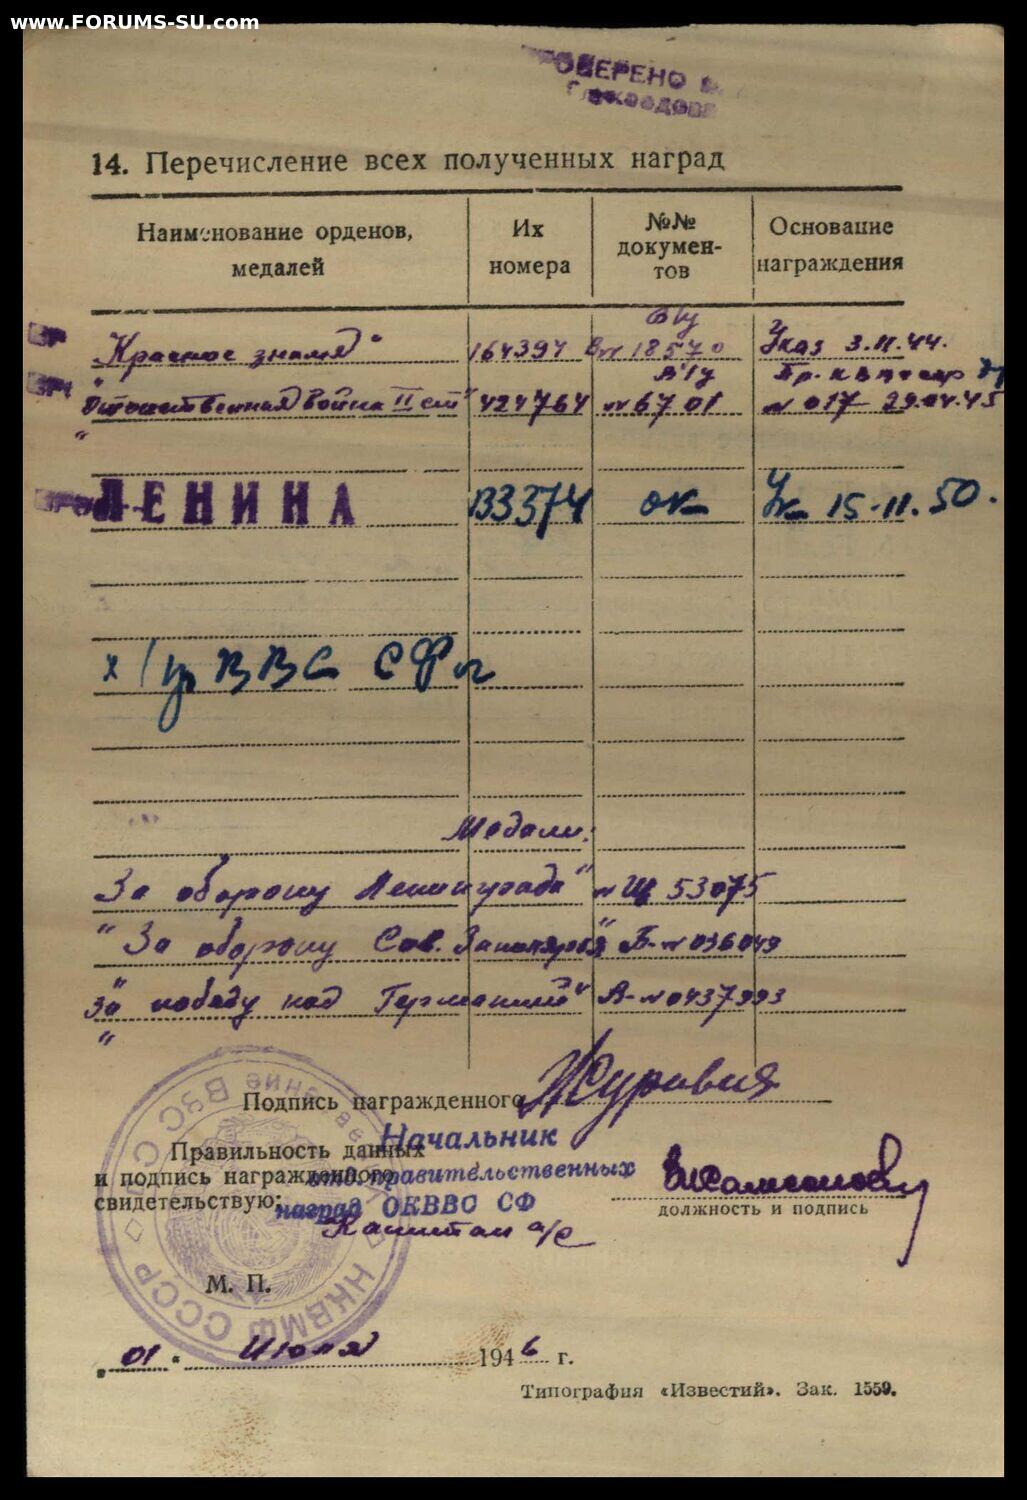 www.FORUMS-SU.com
14. Перечисление всех полученных наград
Наименование орденов, медалей
Их номера
№№ документов
Основание награждения
"Красное знамя" 164394 № 18570 Указ 3.11.44.
"Отечественная война II ст" 424764 № 6701 № 017 29.04.45
ЛЕНИНА 133374 ок Ук 15-11.50.
ВВС СФл
Медали:
"За оборону Ленинграда" № Щ 53075
"За оборону Сов. Заполярья" Б-№036049
"За победу над Германией" А-№0437993
Подпись награжденного
Правильность данных
и подпись награжденного
свидетельствую:
Начальник
отд. правительственных
наград ОКВВС СФ
Капитан а/с
должность и подпись
НКВМФ СССР
М. П.
"01" Июля 1946 г.
Типография «Известий». Зак. 1559.